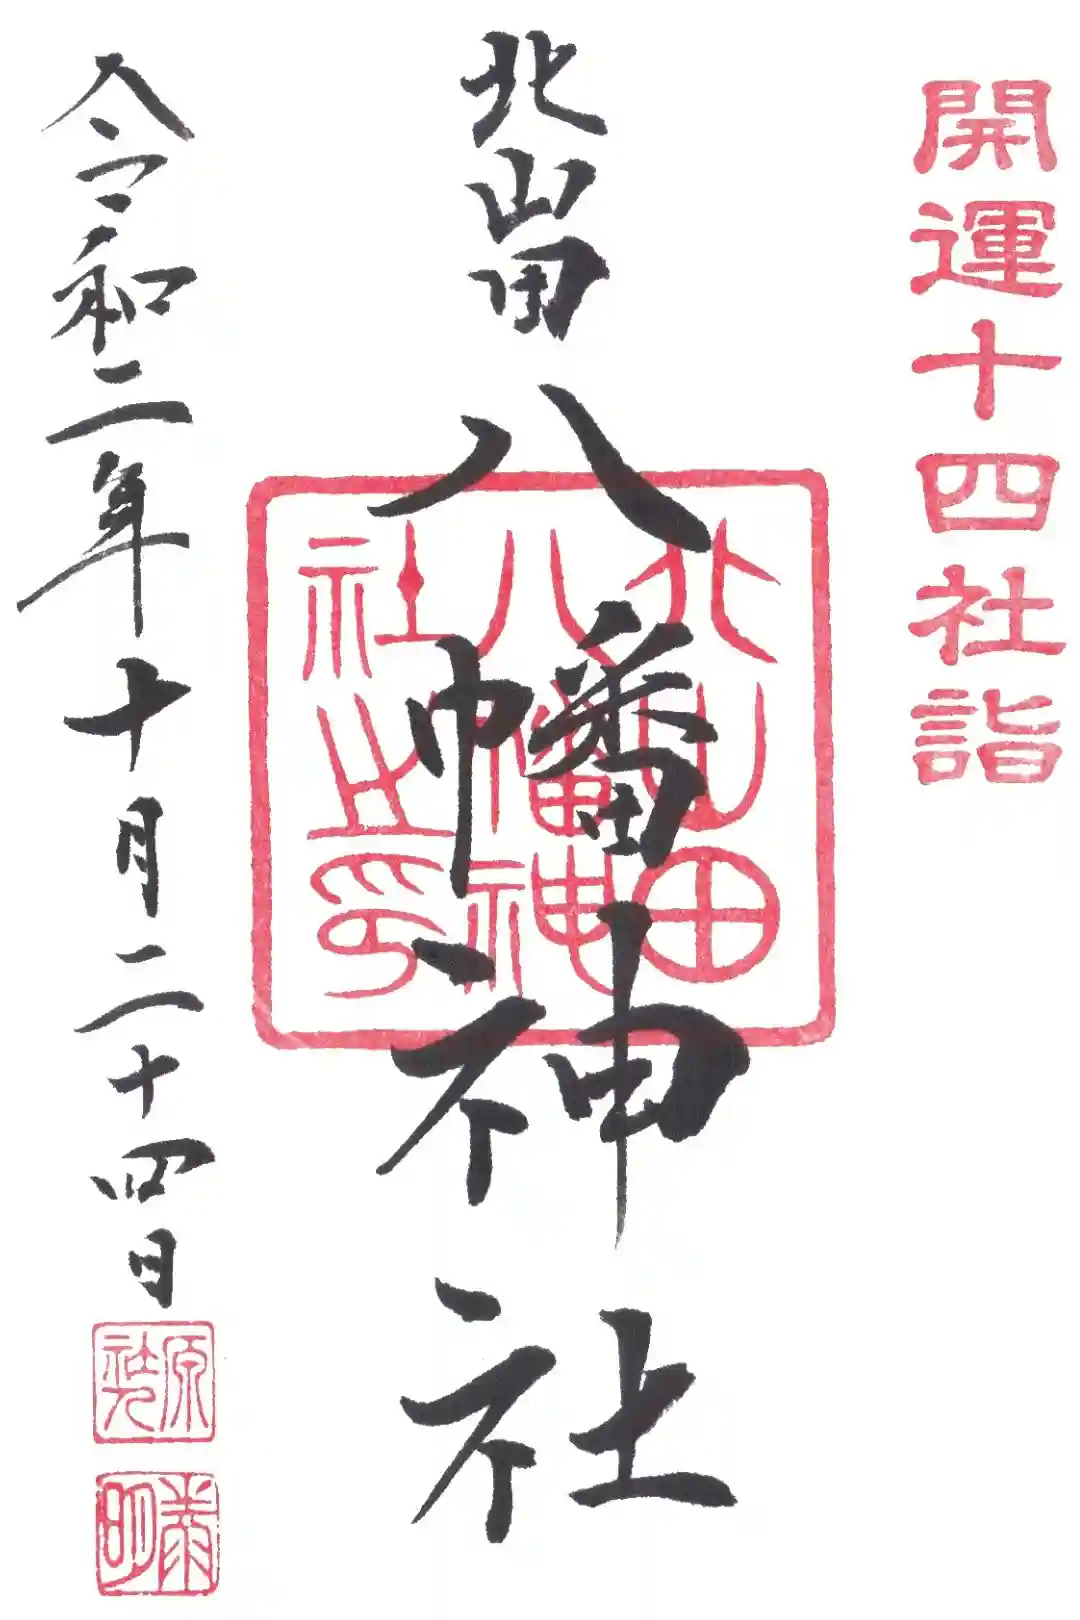 開運十四社詣
北山田八幡神社
北山田
八幡神
社之印
令和二年十月二十四日